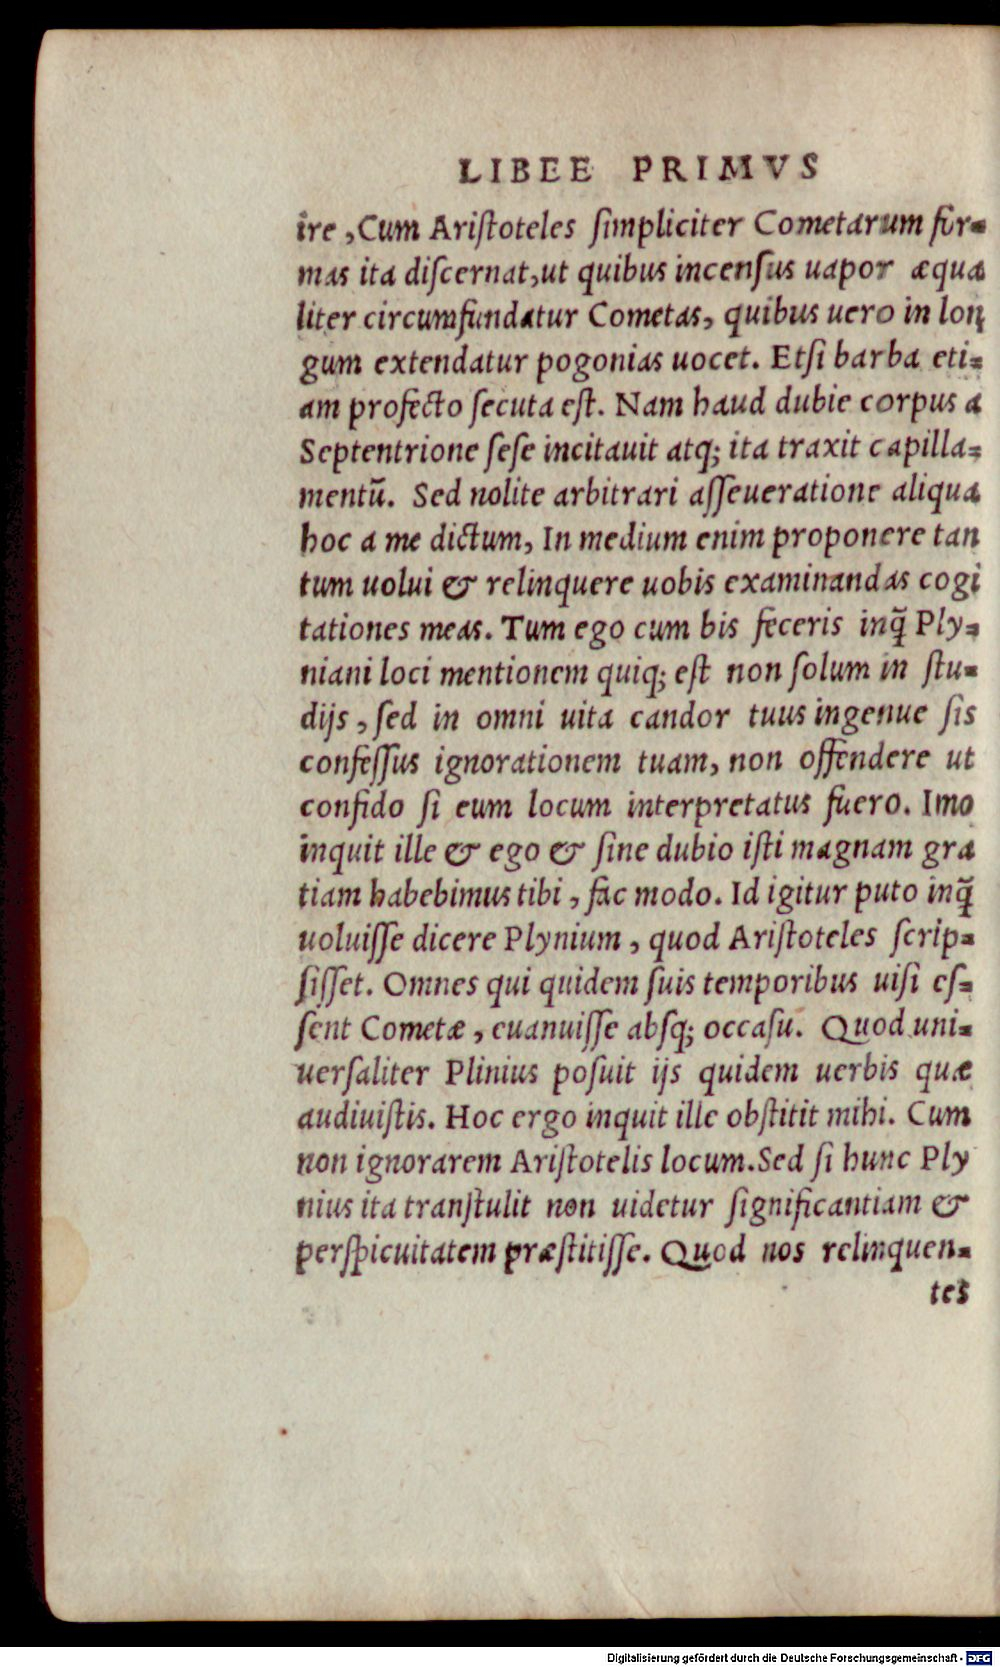 LIBEE PRIMVS
ire ,Cum Ariſtoteles ſimpliciter Cometarum for-
mas ita diſcernat,ut quibus incenſus uapor æqua
liter circumfundatur Cometas, quibus uero in lon
gum extendatur pogonias uocet. Etſi barba eti-
am profecto ſecuta eſt. Nam haud dubie corpus a
Septentrione ſeſe incitauit atq; ita traxit capilla-
mentū. Sed nolite arbitrari aſſeueratione aliqua
hoc a me dictum, In medium enim proponere tan
tum uolui & relinquere uobis examinandas cogi
tationes meas. Tum ego cum bis feceris inq̃ Ply-
niani loci mentionem quiq; eſt non ſolum in ſtu-
dijs , ſed in omni uita candor tuus ingenue ſis
confeſſus ignorationem tuam, non offendere ut
confido ſi eum locum interpretatus fuero. Imo
inquit ille & ego & ſine dubio iſti magnam gra
tiam habebimus tibi , fac modo. Id igitur puto inq̃
uoluiſſe dicere Plynium , quod Ariſtoteles ſcrip-
ſiſſet. Omnes qui quidem ſuis temporibus uiſi eſ-
ſent Cometæ , euanuiſſe abſq; occaſu. Quod uni-
uerſaliter Plinius poſuit ijs quidem uerbis quæ
audiuiſtis. Hoc ergo inquit ille obſtitit mihi. Cum
non ignorarem Ariſtotelis locum.Sed ſi hunc Ply
nius ita tranſtulit non uidetur ſignificantiam &
perſpicuitatem præſtitiſſe. Quod nos relinquen-
tes
Digitalisierung gefördert durch die Deutsche Forschungsgemeinschaft - DFG